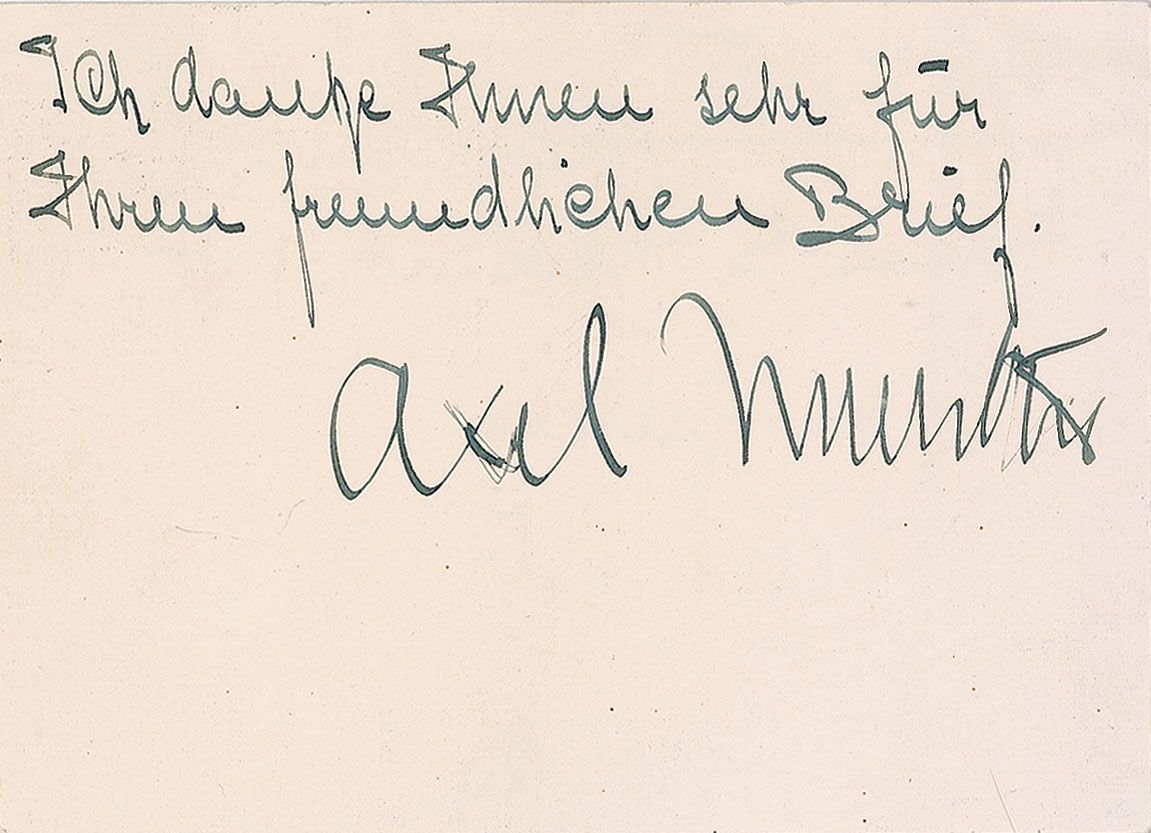 Ich danke Ihnen sehr für
Ihren freundlichen Brief.
Axel Munthe